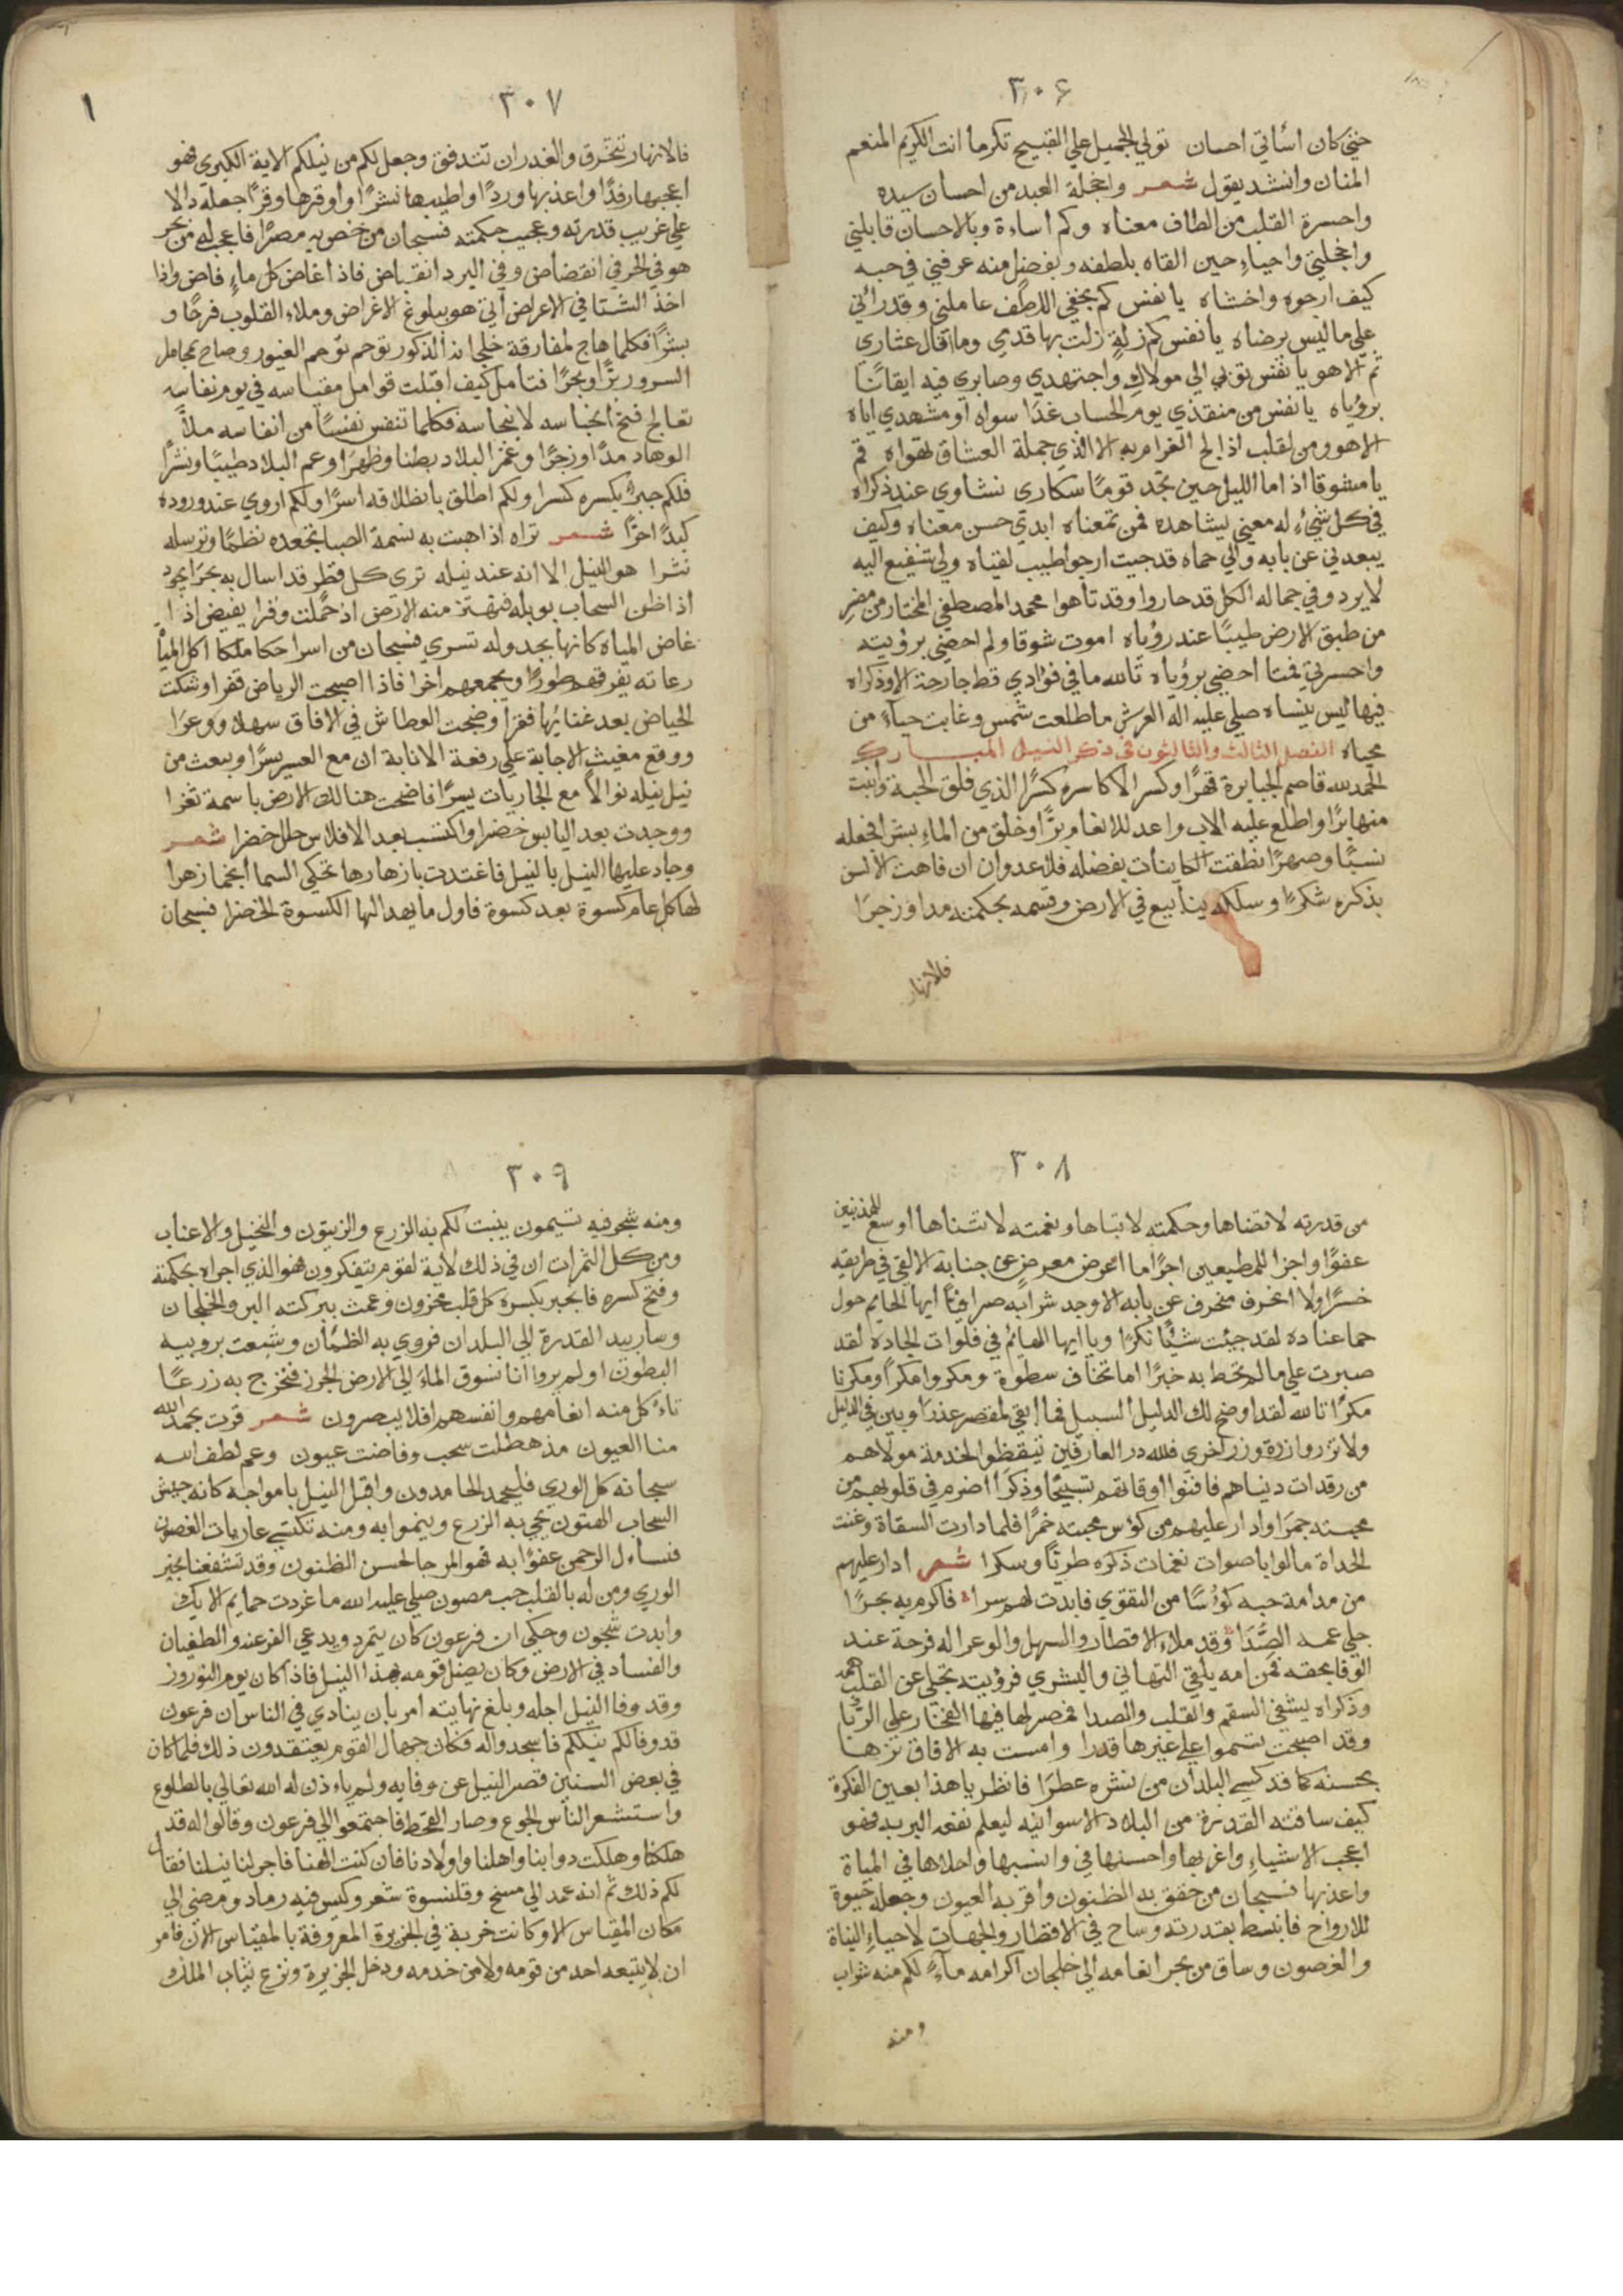 ٣٠٦
كان اسأتي احسان تولي الجميل علي القبيح تكرما انت الكريم المنعم
المنان وانشد يقول شعر واخجلة العبد من احسان سيده
واحسرة القلب من الطاف معناه وكم اساءة وبالاحسان قابلني
واخجلتي واحياءِ حين القاه بلطفه وبفضل منه عرفني في حبه
كيف ارجوه واخشاه يا نفس كم بخفي اللطف عاملني وقد رأني
علي ما ليس يرضاه يا نفس كم زلة زلت بها قدمي وما اقال عثاري
ثم الا هو يا نفس توبي الي مولاك واجتهدي وصابري فيه ايقانًا
برؤياه يا نفس من منقذي يوم الحساب غدًا سواه او مشهدي اياه
الا هو ومن لقلب اذا لح الغرام به الا الذي جملة العشاق تهواه قم
يا مشوقا اذا ما الليل حين تجد قومًا سكاري نشاوي عند ذكراه
في كل شيءٍ له معني يشاهده فمن تمعناه ابدي حسن معناه وكيف
يبعدني عن بابه والي حماه قد جيت ارجوا طيب لقياه ولي شفيع اليه
لا يرد وفي جماله الكل قد حاروا وقد تاهوا محمد المصطفي المختار من مضر
من طبق الارض طيبًا عند رؤياه اموت شوقا ولم احضي برؤيته
واحسرتي فمتا احضي برؤياه تالله ما في فؤادي قط جارحة الا وذكراه
فيها ليس ينساه صلي عليه اله العرش ما طلعت شمس وغابت حياءً من
محياه الفصل الثالث والثالثون في ذكر النيل المبارك
الحمد لله قاصم الجبابرة قهرًا وكسر الاكاسره كسرًا الذي فلق الحبة وانبت
منها برًا واطلع عليه الاب واعد للانعام برًا وخلق من الماءِ بشرا فجعله
نسبًا وصهرًا نطقت الكاينات بفضله فلا عدوان ان فاهت الالسن
بذكره شكرًا وسلكه ينابيع في الارض وقسمه بحكمته مدا وزجرًا
فالانهار
٣٠٧
١
فالانهار تتخرق والغدران تتدفق وجعل لكم من نيلكم الاية الكبري فهو
اعجبها رفدًا واعذبها وردًا واطيبها نشرًا واوقرها وقرًا جعله دالا
علي غريب قدرته وعجيب حكمته فسبحان من خص به مصرًا فاعجب له من بحر
هو في الحر في انقضاض وفي البرد انقباض فاذا غاض كل ماءٍ فاض واذا
اخذ الشتا في الاعراض أتي هو ببلوغ الاغراض وملاء القلوب فرحًا و
بشرًا فكلما هاج لمفارقة خلجانه الذكور توحم توحم الغيور وصاح بمجامل
السرور برًا وبحرًا فتامل كيف اقبلت قوامل مقياسه في يوم نفاسه
تعالج فتح انحباسه لانبجاسه فكلما تنفس نفسًا من انفاسه ملأ
الوهاد مدًا وزجرًا وغمر البلاد بطنا وظهرًا وعم البلاد طيبًا ونشرًا
فلكم جبر بكسره كسرا ولكم اطلق بانطلاقه اسرًا ولكم اروي عند وروده
كبدًا احرًا شعر تراه اذا هبت به نسمة الصبا تجعده نظمًا وترسله
نثرا هو النيل الا انه عند نيله تري كل قطر قد اسال به بحرًا يجود
اذا ظن السحاب بوبله فتهتز منه الارض اذ حملت وقرا يفيض اذا
غاض المياه كانها بجدوله تسري فسبحان من اسرا
رعاته يفرقهم طورًا ويجمعهم اخرا فاذا اصبحت الرياض فقرا وشكت
الحياض بعد غنائها فقرًا وضجت العطاش في الافاق سهلا ووعرًا
ووقع مغيث الاجابة علي رقعة الانابة ان مع العسر يسرًا وبعث من
نيل نيله نوالاً مع الجاريات يسرًا فاضحت هنالك الارض باسمة ثغرا
ووجدت بعد اليابس خضرا واكتسب بعد الافلاس حللا خضرا شعر
وجاد عليها النيل بالنيل فاغتدت بازهارها تحكي السما أنجما زهرا
لها كل عام كسوة بعد كسوة فاول ما يهد اليها الكسوة الخضرا فسبحان
٣٠٨
من قدرته لا تضاها وحكمته لا تباها ونعمته لا تتناها اوسع للمذنبين
عفوًا واجزا للمطيعين اجرًا ما اعرض معرض عن جنابه الا لقي في طريقه
خسرًا ولا انحرف منحرف عن بابه الا وجد شرابه صرا فيا أيها الحايم حول
حما عناده لقد جئت شيئًا نكرًا ويا ايها الهائم في فلوات الجاده لقد
صبرت علي ما لم تحط به خبرًا اما تخاف سطوة ومكروا مكرًا ومكرنا
مكرًا تالله لقد اوضح لك الدليل السبيل فما ابقي لمقصر عذرًا وبين في
ولا تزر وازرة وزر اخري فلله در العارفين تيقظوا لخدمة مولاهم
من رقدات دنياهم فافنوا اوقاتهم تسبيحًا وذكرًا اضرم في قلوبهم من
محبته جمرًا وادار عليهم من كؤس محبته خمرًا فلما دارت السقاة وغنت
الحداة مالوا باصوات نغمات ذكره طربًا وسكرا شعر ادار عليهم
من مدامة حبه كؤسًا من التقوي فابدت لهم سرا فاكرم به بحرًا
جلي عمه الصدا وقد ملاء الاقطار والسهل والوعرا له فرحة عند
الوفا بحقه فمن امه يلقي التهاني والبشري فرؤيته تجلي عن القلب همه
وذكراه يشفي السقم والقلب والصدا فمصر لها فيها الفخار علي الربا
وقد اصبحت تسموا علي غيرها قدرا وامست به الافاق تزها
بحسنه كما قد كسي البلدان من نشره عطرًا فانظر يا هذا بعين الفكرة
كيف ساقته القدرة من البلاد الاسوانيه ليعلم نفعه البريه فهو
اعجب الاشياءِ واغربها واحسنها في وانسبها واحلاها في المياة
واعذبها فسبحان من حقق به الظنون واقر به العيون وجعله حيوة
للارواح فانبسط بقدرته وساح في الاقطار والجهات لاحياءِ النباة
والغصون وساق من بحر انعامه الي خلجان اكرامه ماءً لكم منه شراب
ومنه
٣٠٩
ومنه شجر فيه تسيمون ينبت لكم به الزرع والزيتون والنخيل والاعناب
ومن كل الثمرات ان في ذلك لأية لقوم يتفكرون فهو الذي اجراه بحكمته
وفتح كسره فانجبر بكسره كل قلب محزون وعمت ببركته البر والخلجان
وسار بيد القدرة الي البلدان فروي به الظمأن وشبعت بروبيه
البطون اولم يروا انا نسوق الماءَ الي الارض الجرز فنخرج به زرعًا
تاءكل منه انعامهم وانفسهم افلا يبصرون شعر قرت بحمد الله
منا العيون مذ هطلت سحب وفاضت عيون وعم لطف الله
سبحانه كل الوري فليحمد الحامدون واقبل النيل بامواجه كانه جيش
السحاب الهتون يحي به الزرع وينموا به ومنه تكتسي عاريات الغصون
فنساءل الرحمن عفوًا به فهو المرجا لحسن الظنون وقد تشفعنا بخير
الوري ومن له بالقلب حب مصون صلي عليه الله ما غردت حمايم الايك
وابدت شجون وحكي ان فرعون كان يتمرد ويدعي الفرعنه والطغيان
والفساد في الارض وكان يضل قومه بهذا النيل فاذا كان يوم النوروز
وقد وفا النيل اجله وبلغ نهايته امر بان ينادي في الناس ان فرعون
قد وفا لكم نيلكم فاسجدوا له فكان جهال القوم يعتقدون ذلك فلما كان
في بعض السنين قصر النيل عن وفايه ولم ياءذن له الله تعالي بالطلوع
واستشعر الناس الجوع وصار القحط فاجتمعوا الي فرعون وقالوا له قد
هلكنا وهلكت دوابنا واهلنا واولادنا فأن كنت الهنا فاجر لنا نيلنا فقال
لكم ذلك ثم انه عمد الي مسح وقلنسوة شعر وكيس فيه رماد ومضي الي
مكان المقياس الا وكانت خربة في الجزيرة المعروفة بالمقياس الان فامر
ان لا يتبعه احد من قومه ولا من خدمه ودخل الجزيرة ونزع ثياب الملك